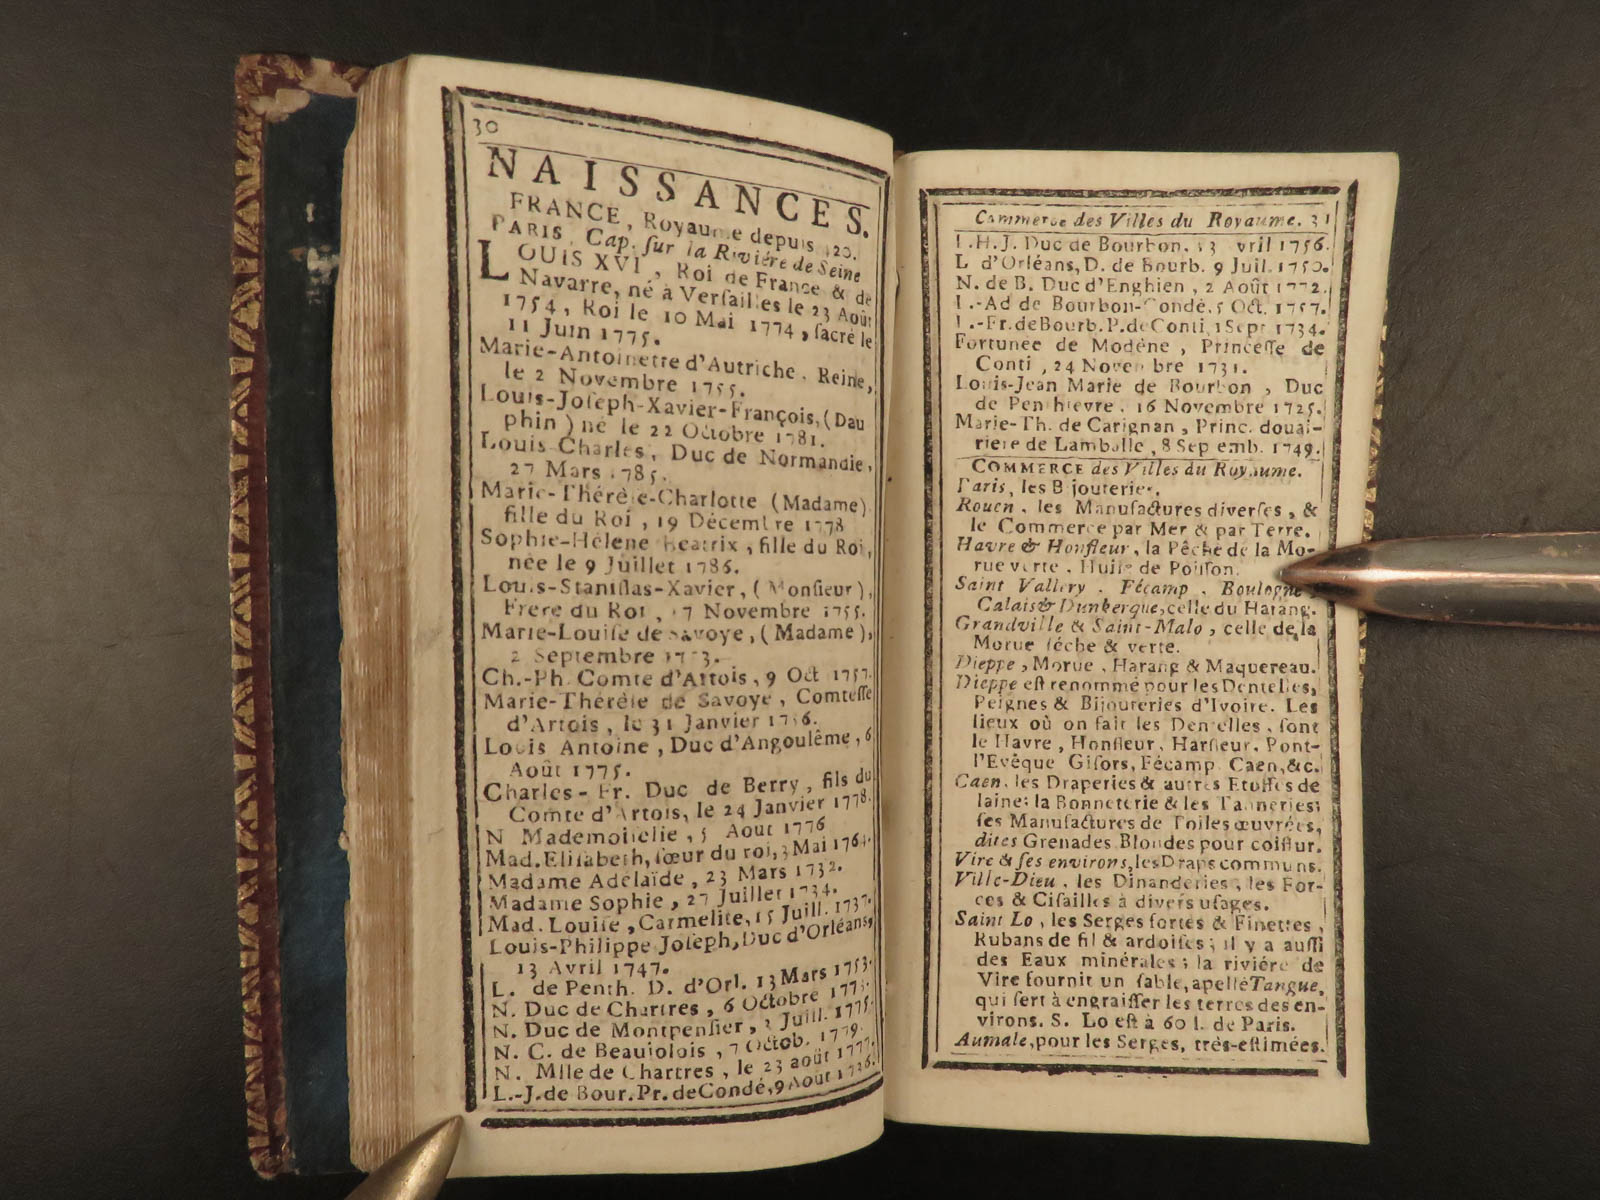 30
NAISSANCES.
FRANCE, Royaume depuis 420.
PARIS, Cap. ſur la Riviére de Seine
LOUIS XVI, Roi de France & de
Navarre, né à Verſailles le 23 Août
1754, Roi le 10 Mai 1774, ſacré le
11 Juin 1775.
Marie-Antoinette d'Autriche, Reine,
le 2 Novembre 1755.
Louis-Joſeph-Xavier-François, (Dau
phin) né le 22 Octobre 1781.
Louis Charles, Duc de Normandie,
27 Mars 1785.
Marie-Thérèſe-Charlotte (Madame)
fille du Roi, 19 Décembre 1778
Sophie-Hélene Beatrix, fille du Roi,
née le 9 Juillet 1786.
Louis-Staniſlas-Xavier, (Monſieur),
Frere du Roi, 17 Novembre 1755.
Marie-Louiſe de Savoye, (Madame),
2 Septembre
Ch.-Ph. Comte d'Artois, 9 Oct 1757.
Marie-Thérèſe de Savoye, Comteſſe
d'Artois, le 31 Janvier 1756.
Louis Antoine, Duc d'Angoulême, 6
Août 1775.
Charles-Fr. Duc de Berry, fils du
Comte d'Artois, le 24 Janvier 1778.
N Mademoiſelle, 5 Aout 1776
Mad. Eliſabeth, ſœur du roi, 3 Mai 1764.
Madame Adelaïde, 23 Mars 1732.
Madame Sophie, 27 Juillet 1734.
Mad. Louiſe, Carmelite, 15 Juill. 1737.
Louis-Philippe Joſeph, Duc d'Orléans,
13 Avril 1747.
L. de Penth. D. d'Orl. 13 Mars 1753.
N. Duc de Chartres, 6 Octobre 1773.
N. Duc de Montpenſier, 3 Juill. 1775.
N. C. de Beaujolois, 7 Octob. 1779.
N. Mlle de Chartres, le 23 août 1777.
L.-J. de Bour. Pr. de Condé, 9 Août 1736.
Commerce des Villes du Royaume. 31
L.H.J. Duc de Bourbon, 13 Avril 1756.
L d'Orléans, D. de Bourb. 9 Juil. 1750.
N. de B. Duc d'Enghien, 2 Août 1772.
L.-Ad de Bourbon-Condé, 5 Oct. 1757.
L.-Fr. de Bourb. P. de Conti, 1 Sept 1734.
Fortunée de Modène, Princeſſe de
Conti, 24 Novembre 1731.
Louis-Jean Marie de Bourbon, Duc
de Penthievre, 16 Novembre 1725.
Marie-Th. de Carignan, Princ. douai-
riere de Lamballe, 8 Septemb. 1749.
COMMERCE des Villes du Royaume.
Paris, les Bijouteries.
Rouen, les Manufactures diverſes, &
le Commerce par Mer & par Terre.
Havre & Honfleur, la Pêche de la Mo-
rue verte, Huile de Poiſſon.
Saint Vallery, Fécamp, Boulogne,
Calais & Dunkerque, celle du Harang.
Grandville & Saint-Malo, celle de la
Morue ſéche & verte.
Dieppe, Morue, Harang & Maquereau.
Dieppe eſt renommé pour les Dentelles,
Peignes & Bijouteries d'Ivoire. Les
lieux où on fait les Dentelles, ſont
le Havre, Honfleur, Harfleur, Pont-
l'Evêque Giſors, Fécamp Caen, &c.
Caen, les Draperies & autres Etoffes de
laine; la Bonneterie & les Tanneries;
ſes Manufactures de Toiles œuvrées,
dites Grenades Blondes pour coiffur.
Vire & ſes environs, les Draps communs.
Ville-Dieu, les Dinanderies, les For-
ces & Ciſailles à divers uſages.
Saint Lo, les Serges fortes & Finettes,
Rubans de fil & ardoiſes; il y a auſſi
des Eaux minérales; la riviére de
Vire fournit un ſable, apellé Tangue,
qui ſert à engraiſſer les terres des en-
virons. S. Lo eſt à 60 l. de Paris.
Aumale, pour les Serges, très-eſtimées.